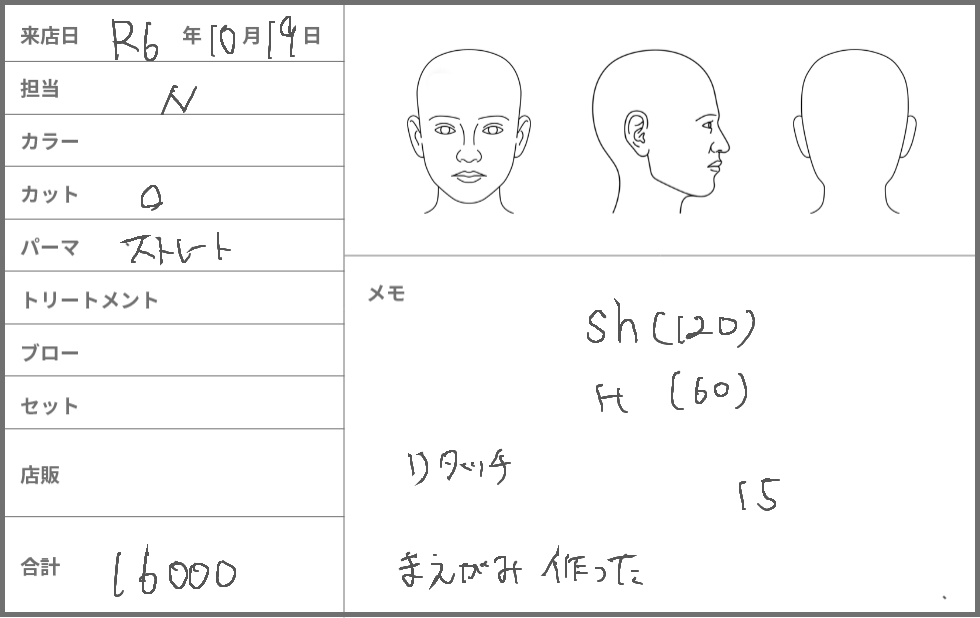 来店日 R6年10月19日
担当 N
カラー
カット 0
パーマ ストレート
トリートメント
ブロー
セット
店販
合計 16000
メモ
sh (120)
H (60)
リタッチ
15
まえがみ 作った